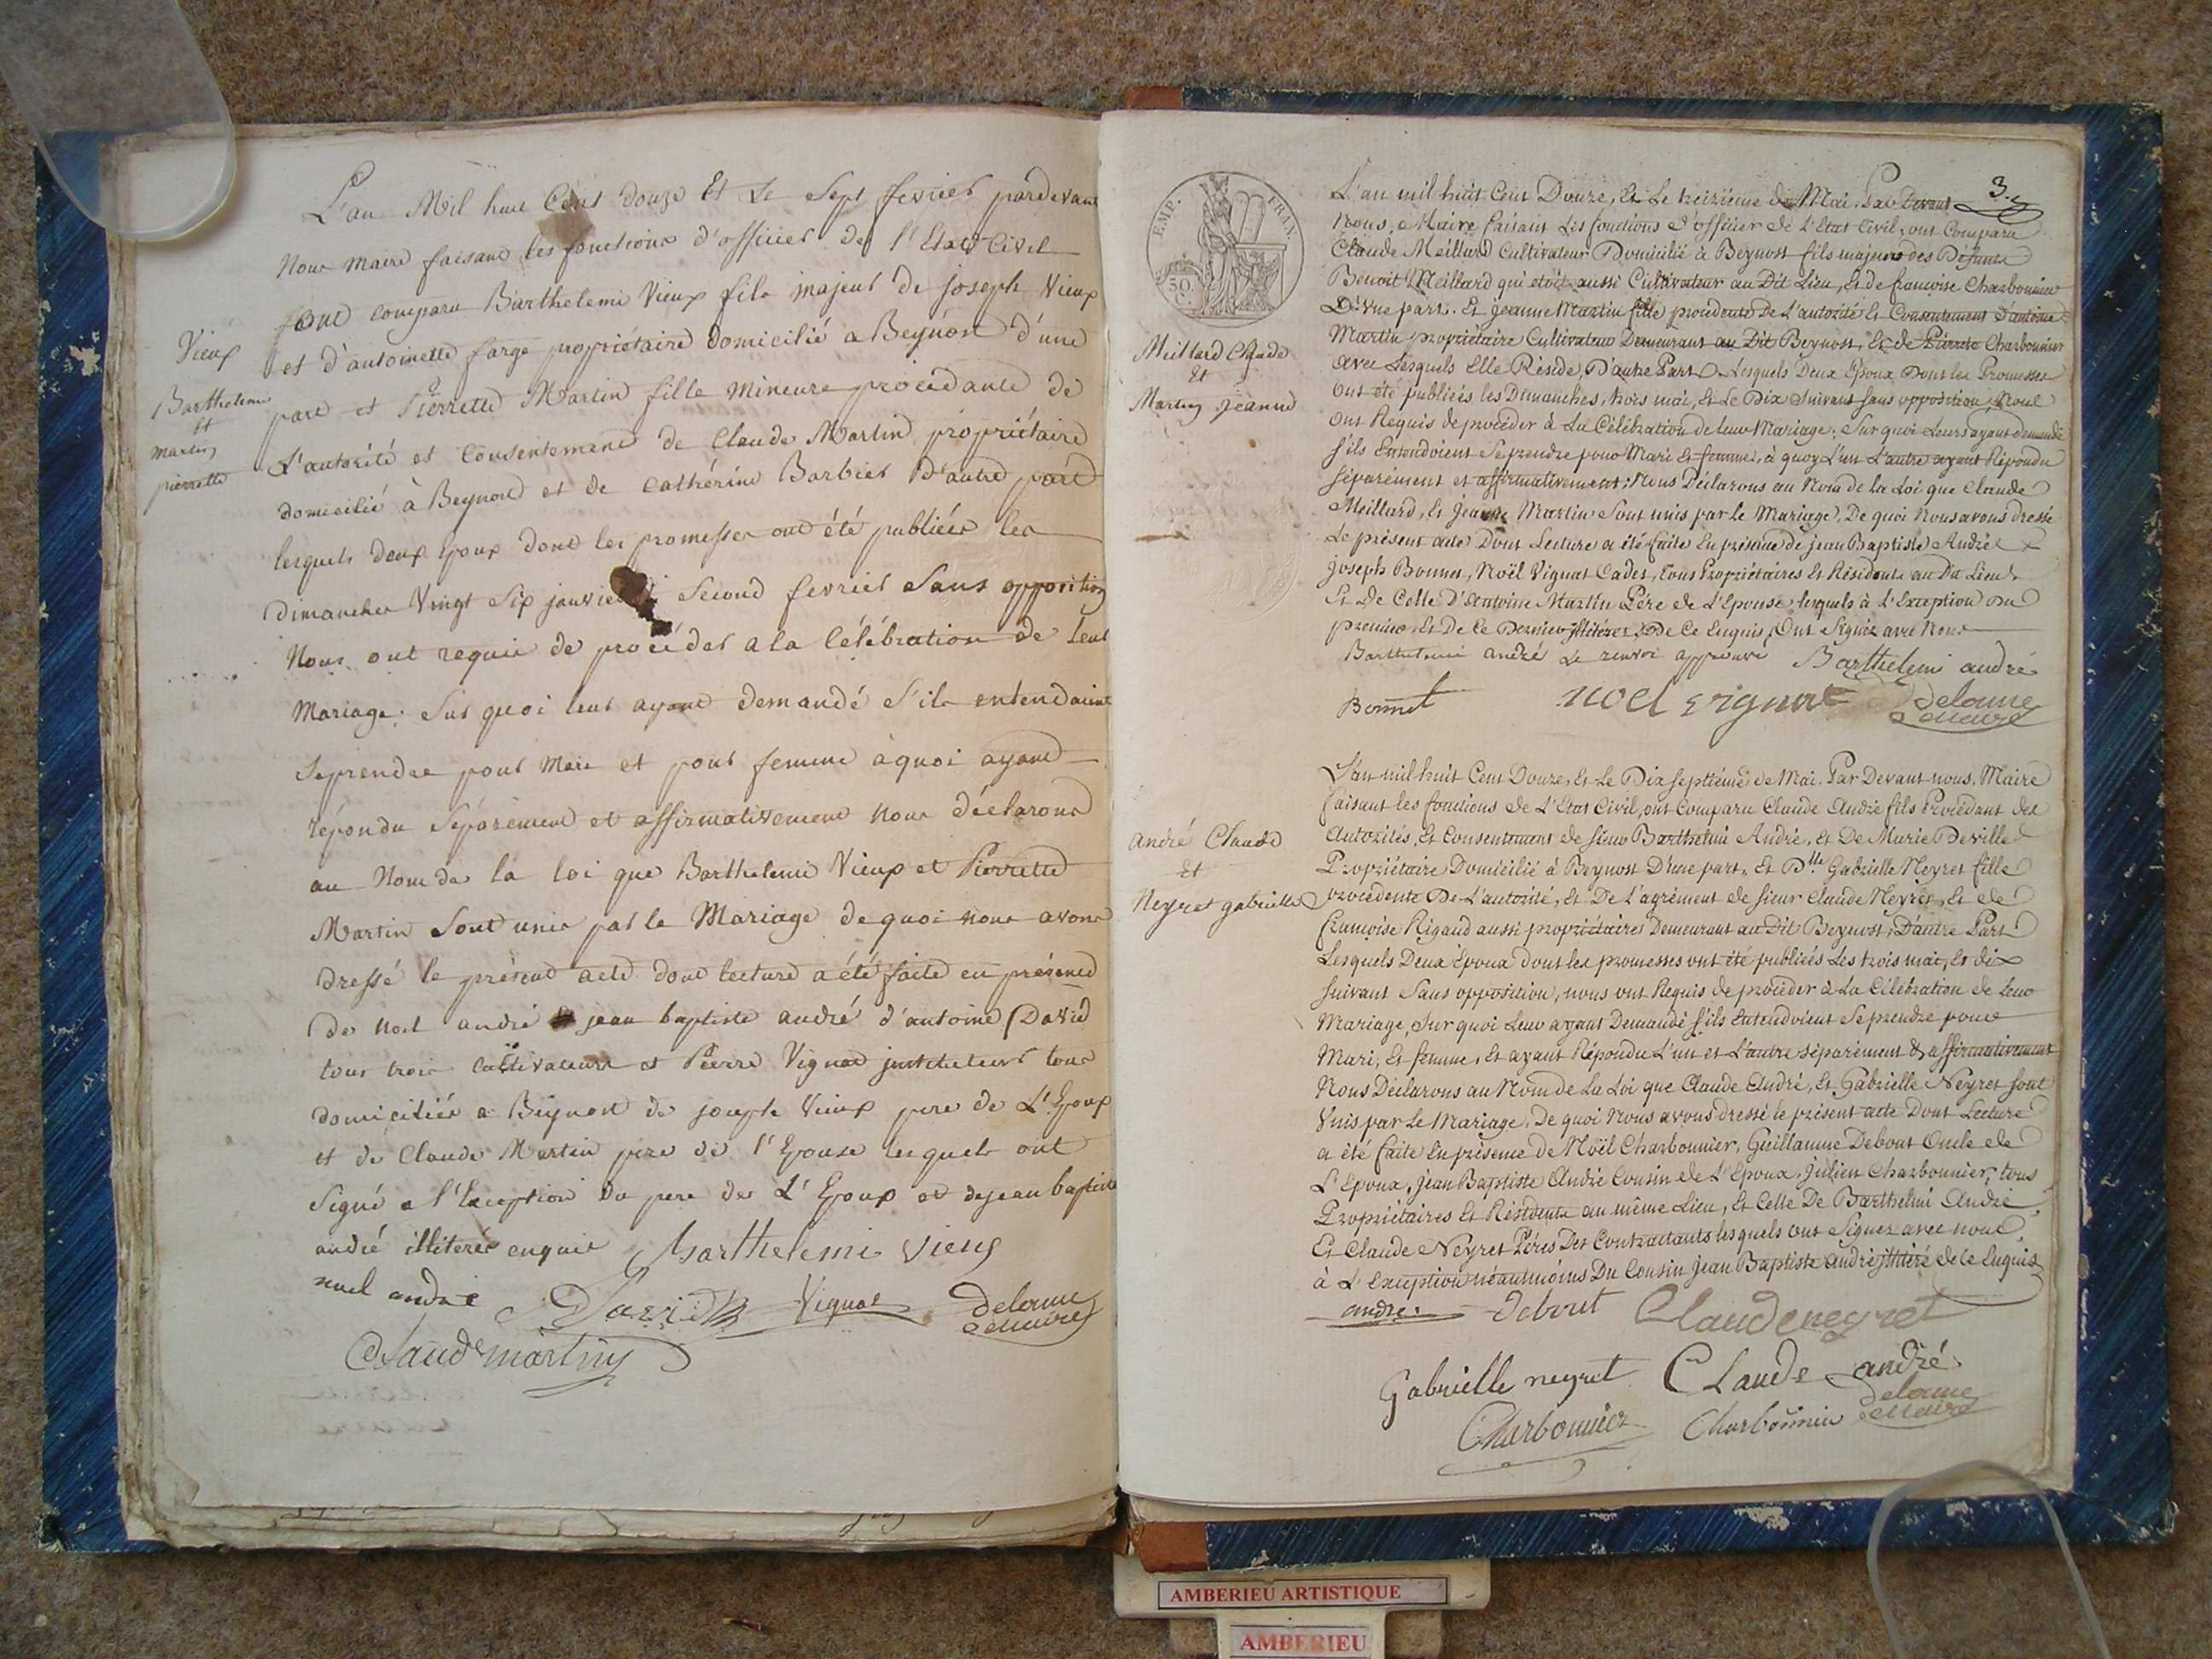 L'an Mil huit Cent douze Et Le Sept fevrier pardevant
Nous maire faisant les fonctions d'officier de l'Etat Civil
sont comparu Barthelemi Vieux fils majeur de joseph Vieux
et d'antoinette farge propriétaire domicilié a Beynost d'une
part et Pierrette Martin fille mineure procedante de
L'autorité et consentement de Claude Martin propriétaire
domicilié à Beynost et de Cathérine Barbier d'autre part
lesquels deux Epoux dont les promesses ont été publiées les
dimanches Vingt Six janvier Second fevrier Sans opposition
Nous ont requis de procéder a la Célébration de leur
Mariage. Sur quoi leur ayant demandé S'ils entendoient
Seprendre pour Mari et pour femme àquoi ayant
répondu Séparément et affirmativement Nous déclarons
au Nom de la loi que Barthelemi Vieux et Pierrette
Martin Sont unis par le Mariage de quoi nous avons
dressé le présent acte dont lecture a été faite en présence
de noel andré jean baptiste andré d'antoine David
tous trois cultivateurs et Pierre Vignat instituteur tous
domiciliés a Beynost de joseph Vieux pere de L'Epoux
et de Claude Martin pere de l'Epouse lesquels ont
Signé a l'Exception du pere de L'Epoux et dejean baptiste
andré illiterés enquis Barthelemi vieux
noel andré David Vignat delorme
Maire
Claude martin
Vieux
Barthelemi
Et
martin
pierrette
3.
EMP. FRAN.
50.
C.
L'an mil huit Cent Douze, Et Le treizieme de Mai. Par Devant
Nous, Maire faisant Les fonctions d'officier de L'Etat Civil, ont Comparu
Claude Meillard Cultivateur Domicilié à Beynost fils majeur des Défunts
Benoit Meillard qui etoit aussi Cultivateur au Dit Lieu, Et de francoise Charbonnier
D'Vne part. Et jeanne Martin fille procédente De L'autorité Et Consentement d'antoine
Martin propriétaire Cultivateur Demeurant au Dit Beynost, Et de Pierrette Charbonnier
avec Lesquels Elle Réside, D'autre Part. Lesquels Deux Epoux Dont les Promesses
Ont été publiées les Dimanches, trois mai, Et Le Dix Suivant sans opposition, Nous
Ont Requis de procéder à La Célébration de leur Mariage. Sur quoi Leurs ayant demandé
s'ils Entendoient Seprendre pour Mari Et femme, à quoy L'un L'autre ayant Répondu
séparément et affirmativement. Nous Déclarons au Nom de la Loi que Claude
Meillard, Et jeanne Martin Sont unis par le Mariage, De quoi Nous avons dressé
Le présent acte Dont Lecture a été faite En présence de jean Baptiste André
joseph Bonnet, Noël Vignat Cadet, tous Propriétaires Et Résidents au Dit Lieu
Et De Celle D'antoine Martin Pére de L'Epouse, lesquels à L'Exception Du
premier, Et De Ce Dernier illitérés De Ce Enquis, Ont Signéz avec Nous
Barthelemi andré Le renvoi approuvé Barthelemi andré
Bonnet noel vignat delorme
Maire
Meillard Claude
Et
Martin Jeanne
L'an mil huit Cent Douze, Et Le Dix Septieme de Mai. Par Devant nous, Maire
faisant les fonctions de L'Etat Civil, ont Comparu Claude André fils Procédant des
autorités, Et Consentement de Sieur Barthelmi André, et De Marie Deville
Propriétaire Domicilié à Beynost D'une part, Et Dlle Gabrielle Neyret fille
procédente De L'autorité, Et De L'agrément de Sieur Claude Neyret, Et de
françoise Rigaud aussi propriétaires Demeurant au Dit Beynost, D'autre Part
Lesquels Deux Epoux dont les promesses ont été publiées Les trois mai, Et dix
suivant Sans opposition, nous ont Requis de procéder à La Célébration de Leur
Mariage, Sur quoi Leur ayant Demandé s'ils Entendoient Se prendre pour
Mari, Et femme, Et ayant Répondu L'un et L'autre séparément & affirmativement
Nous Déclarons au Nom de La Loi que Claude André, Et Gabrielle Neyret sont
Vnis par Le Mariage, De quoi Nous avons dressé le présent acte Dont Lecture
a été faite En présence de Noël Charbonnier, Guillaume Debout Oncle de
L'Epoux, Jean Baptiste André Cousin de L'Epoux, Julien Charbonnier, tous
Propriétaires Et Résidents au même Lieu, Et Celle De Barthelmi André
Et Claude Neyret Péres Des Contractants lesquels ont Signez avec nous,
à L'Exception néantmoins Du Cousin Jean Baptiste André illitéré de Ce Enquis
andré Debout Claude neyret
Gabrielle neyret Claude andré
Charbonnier Charbonnier delorme
Maire
André Claude
Et
Neyret gabrielle
AMBERIEU ARTISTIQUE
AMBERIEU